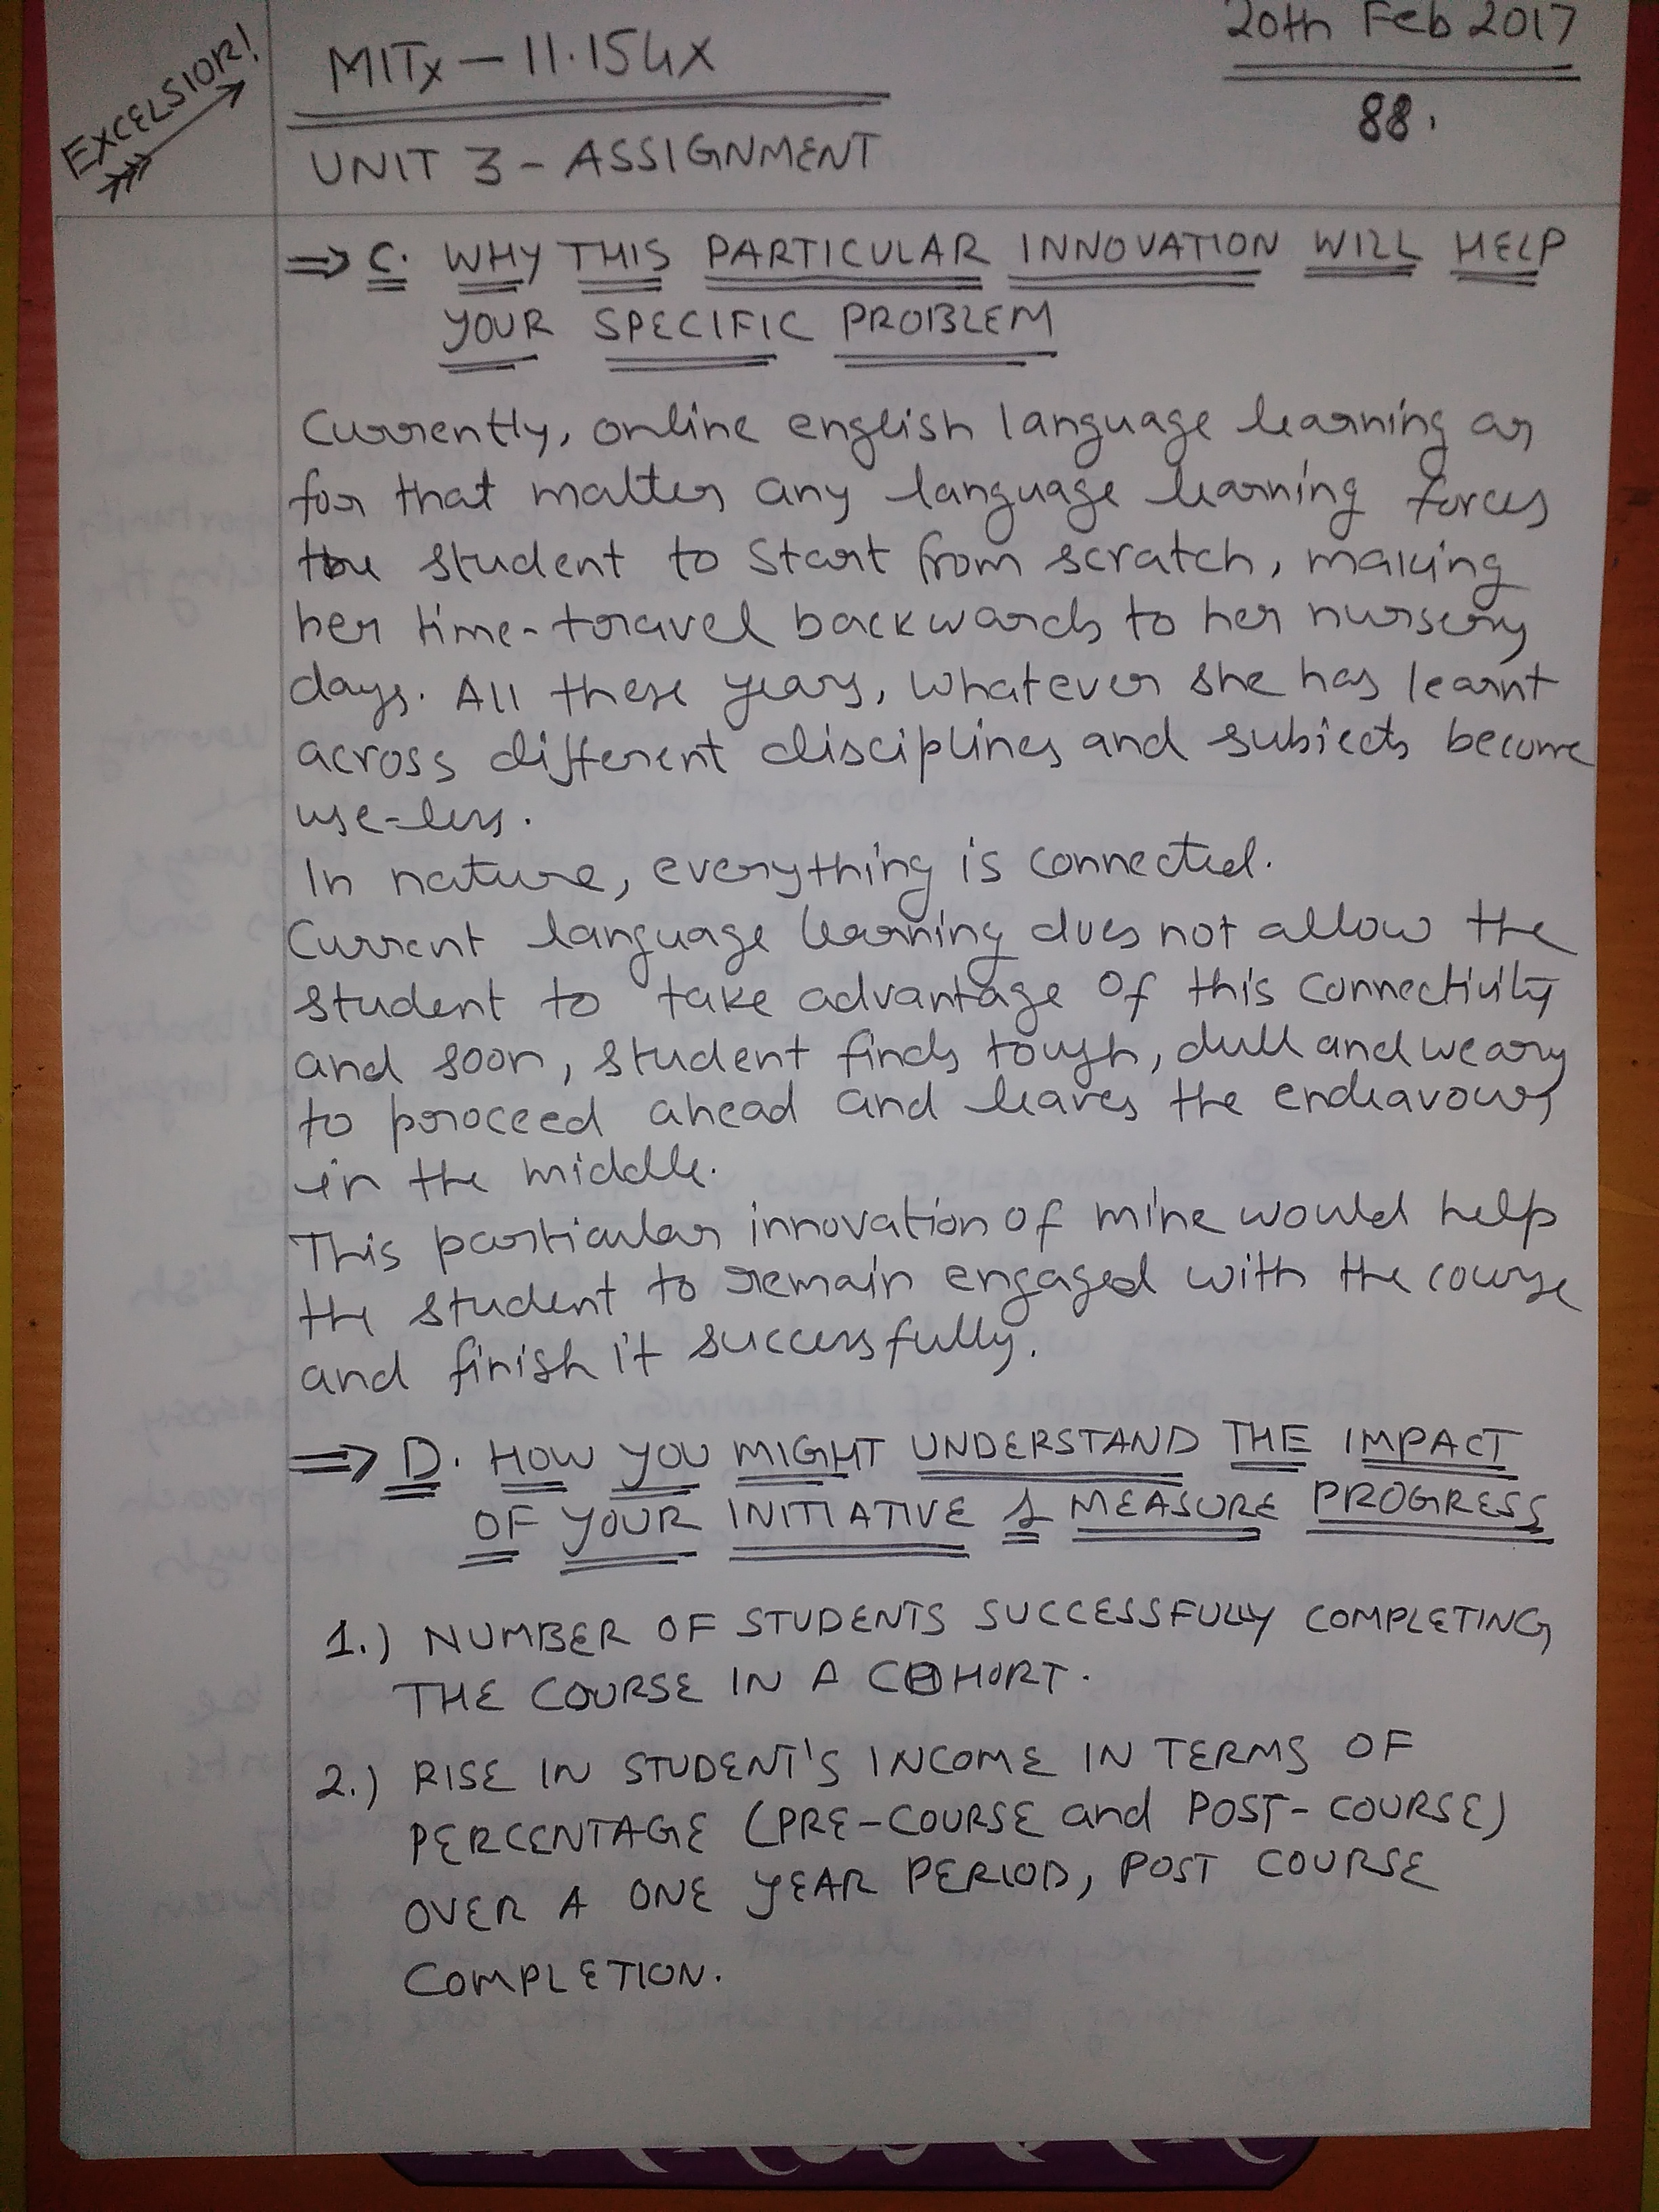 EXCELSIOR!
MITx - 11.154x
20th Feb 2017
88.
UNIT 3 - ASSIGNMENT
⇒ C. WHY THIS PARTICULAR INNOVATION WILL HELP
YOUR SPECIFIC PROBLEM
Currently, online english language learning or
for that matter any language learning forces
the student to start from scratch, making
her time-travel backwards to her nursery
days. All these years, whatever she has learnt
across different disciplines and subjects become
use-less.
In nature, everything is connected.
Current language learning does not allow the
student to take advantage of this connectivity
and soon, student finds tough, dull and weary
to proceed ahead and leaves the endeavour
in the middle.
This particular innovation of mine would help
the student to remain engaged with the course
and finish it successfully.
⇒ D. HOW YOU MIGHT UNDERSTAND THE IMPACT
OF YOUR INITIATIVE & MEASURE PROGRESS
1.) NUMBER OF STUDENTS SUCCESSFULLY COMPLETING
THE COURSE IN A COHORT.
2.) RISE IN STUDENT'S INCOME IN TERMS OF
PERCENTAGE (PRE-COURSE and POST-COURSE)
OVER A ONE YEAR PERIOD, POST COURSE
COMPLETION.